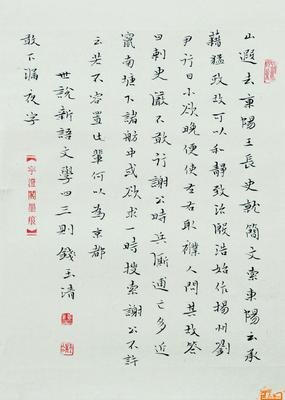 山遐去東陽王長史就簡文索東陽云承
藉猛政故可以和靜致治殷浩始作揚州劉
尹行日小欲晚便使左右取襆人問其故答
曰刺史嚴不敢行謝公時兵厮逋亡多近
竄南塘下諸舫中或欲求一時搜索謝公不許
云若不容置此輩何以為京都
世說新語文學四三則錢玉清
敢下漏夜字
澄閣墨痕